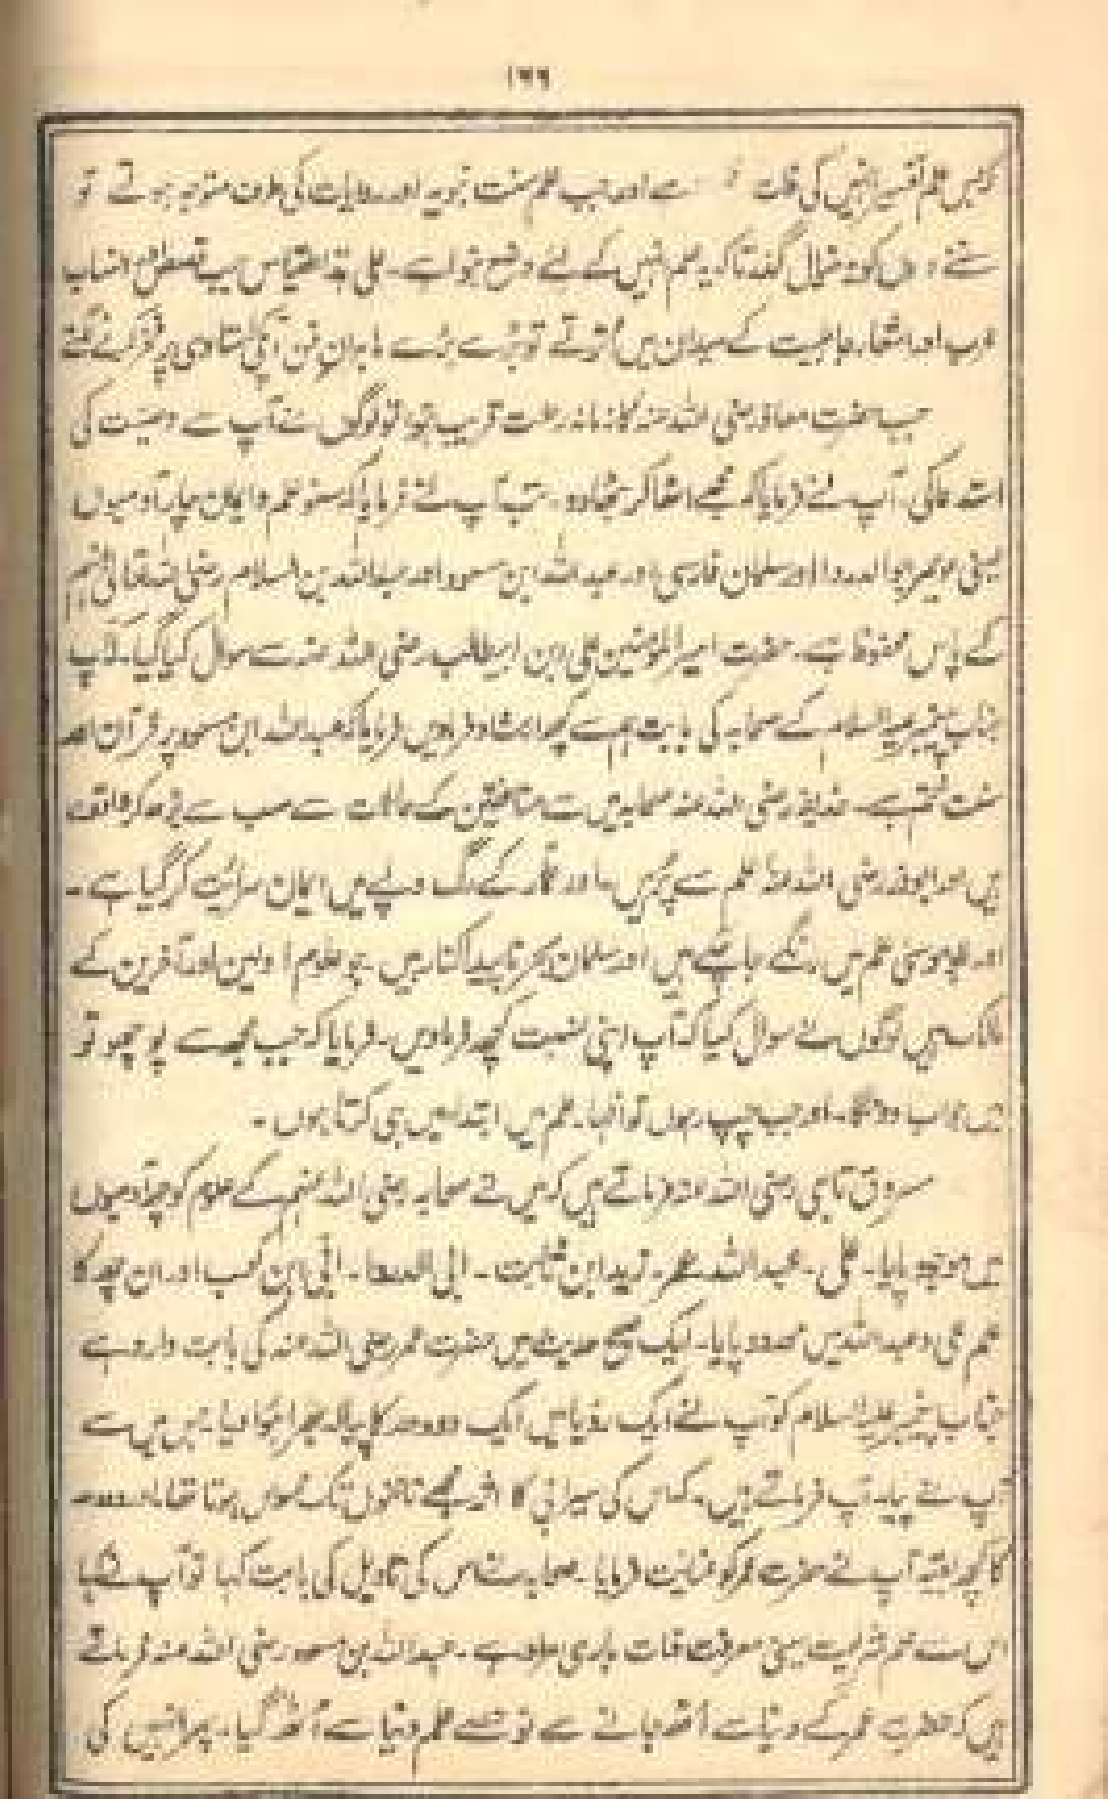 ۱۶۶
کہ بس علم تفسیر انہیں کی ذات سے اور جب علم سنت نبویہ اور روایات کی طرف متوجہ ہوتے تو
سننے والوں کو خیال گذرتا کہ یہ علم انہیں کے لئے وضع ہوا ہے۔ علی ہذا القیاس جب قصص و انساب
عرب اور اشعار جاہلیت کے میدان میں اُترتے تو بڑے بڑے ماہران فن آپکی اُستادی پر فخر کرنے لگتے
جب حضرت معاذ رضی اللہ عنہ کا زمانہ رحلت قریب ہوا تو لوگوں نے آپ سے وصیت کی
استدعا کی۔ آپ نے فرمایا کہ مجھے اٹھا کر بٹھا دو۔ تب آپ نے فرمایا کہ سنو علم و ایمان چار آدمیوں
یعنی عویمر ابوالدرداء اور سلمان فارسی اور عبداللہ ابن مسعود اور عبداللہ بن السلام رضی اللہ تعالیٰ عنہم
کے پاس محفوظ ہے۔ حضرت امیر المؤمنین علی ابن ابیطالب رضی اللہ عنہ سے سوال کیا گیا۔ کہ آپ
جناب پیغمبر علیہ السلام کے صحابہ کی بابت ہم سے کچھ ارشاد فرماویں فرمایا کہ عبداللہ ابن مسعود پر قرآن اور
سنت ختم ہے۔ حذیفہ رضی اللہ عنہ صحابہ میں سے منافقین کے حالات سے سب سے بڑھ کر واقف
ہیں اور ابوذر رضی اللہ عنہ علم سے پُر ہیں۔ اور عمار کے رگ و پے میں ایمان سرائیت کر گیا ہے۔
اور ابوموسیٰ علم میں رنگے جا چکے ہیں اور سلمان بحر ناپیدا کنار ہیں۔ جو علوم اولین اور آخرین کے
مالک ہیں لوگوں نے سوال کیا کہ آپ اپنی نسبت کچھ فرماویں۔ فرمایا کہ جب مجھ سے پوچھو تو
میں جواب دونگا۔ اور جب چپ رہوں تو علم میں ابتدا میں ہی کرتا ہوں۔
مسروق تابعی رضی اللہ عنہ فرماتے ہیں کہ میں نے صحابہ رضی اللہ عنہم کے علوم کو چھ آدمیوں
میں موجود پایا۔ علی۔ عبداللہ۔ عمر۔ زید ابن ثابت۔ ابی الدرداء۔ ابی ابن کعب اور ان چھ کا
علم علی و عبداللہ میں محدود پایا۔ ایک صحیح حدیث میں حضرت عمر رضی اللہ عنہ کی بابت وارد ہے
جناب پیغمبر علیہ السلام کو آپ نے ایک رؤیا میں ایک دودھ کا پیالہ بھرا ہوا دیا۔ جس میں سے
آپ نے پیا۔ آپ فرماتے ہیں۔ کہ اس کی سیرابی کا اثر مجھے ناخنوں تک محسوس ہوتا تھا۔ اور دودھ
کا کچھ بقیہ آپ نے حضرت عمر کو عنایت فرمایا۔ صحابہ نے اس کی تاویل کی بابت کہا تو آپ نے کہا
اس سے علم شریعت یعنی معرفت ذات باری مراد ہے۔ عبداللہ بن مسعود رضی اللہ عنہ فرماتے
ہیں کہ حضرت عمر کے دنیا سے اُٹھ جانے سے نو حصے علم دنیا سے اُٹھ گیا۔ پھر انہیں کی